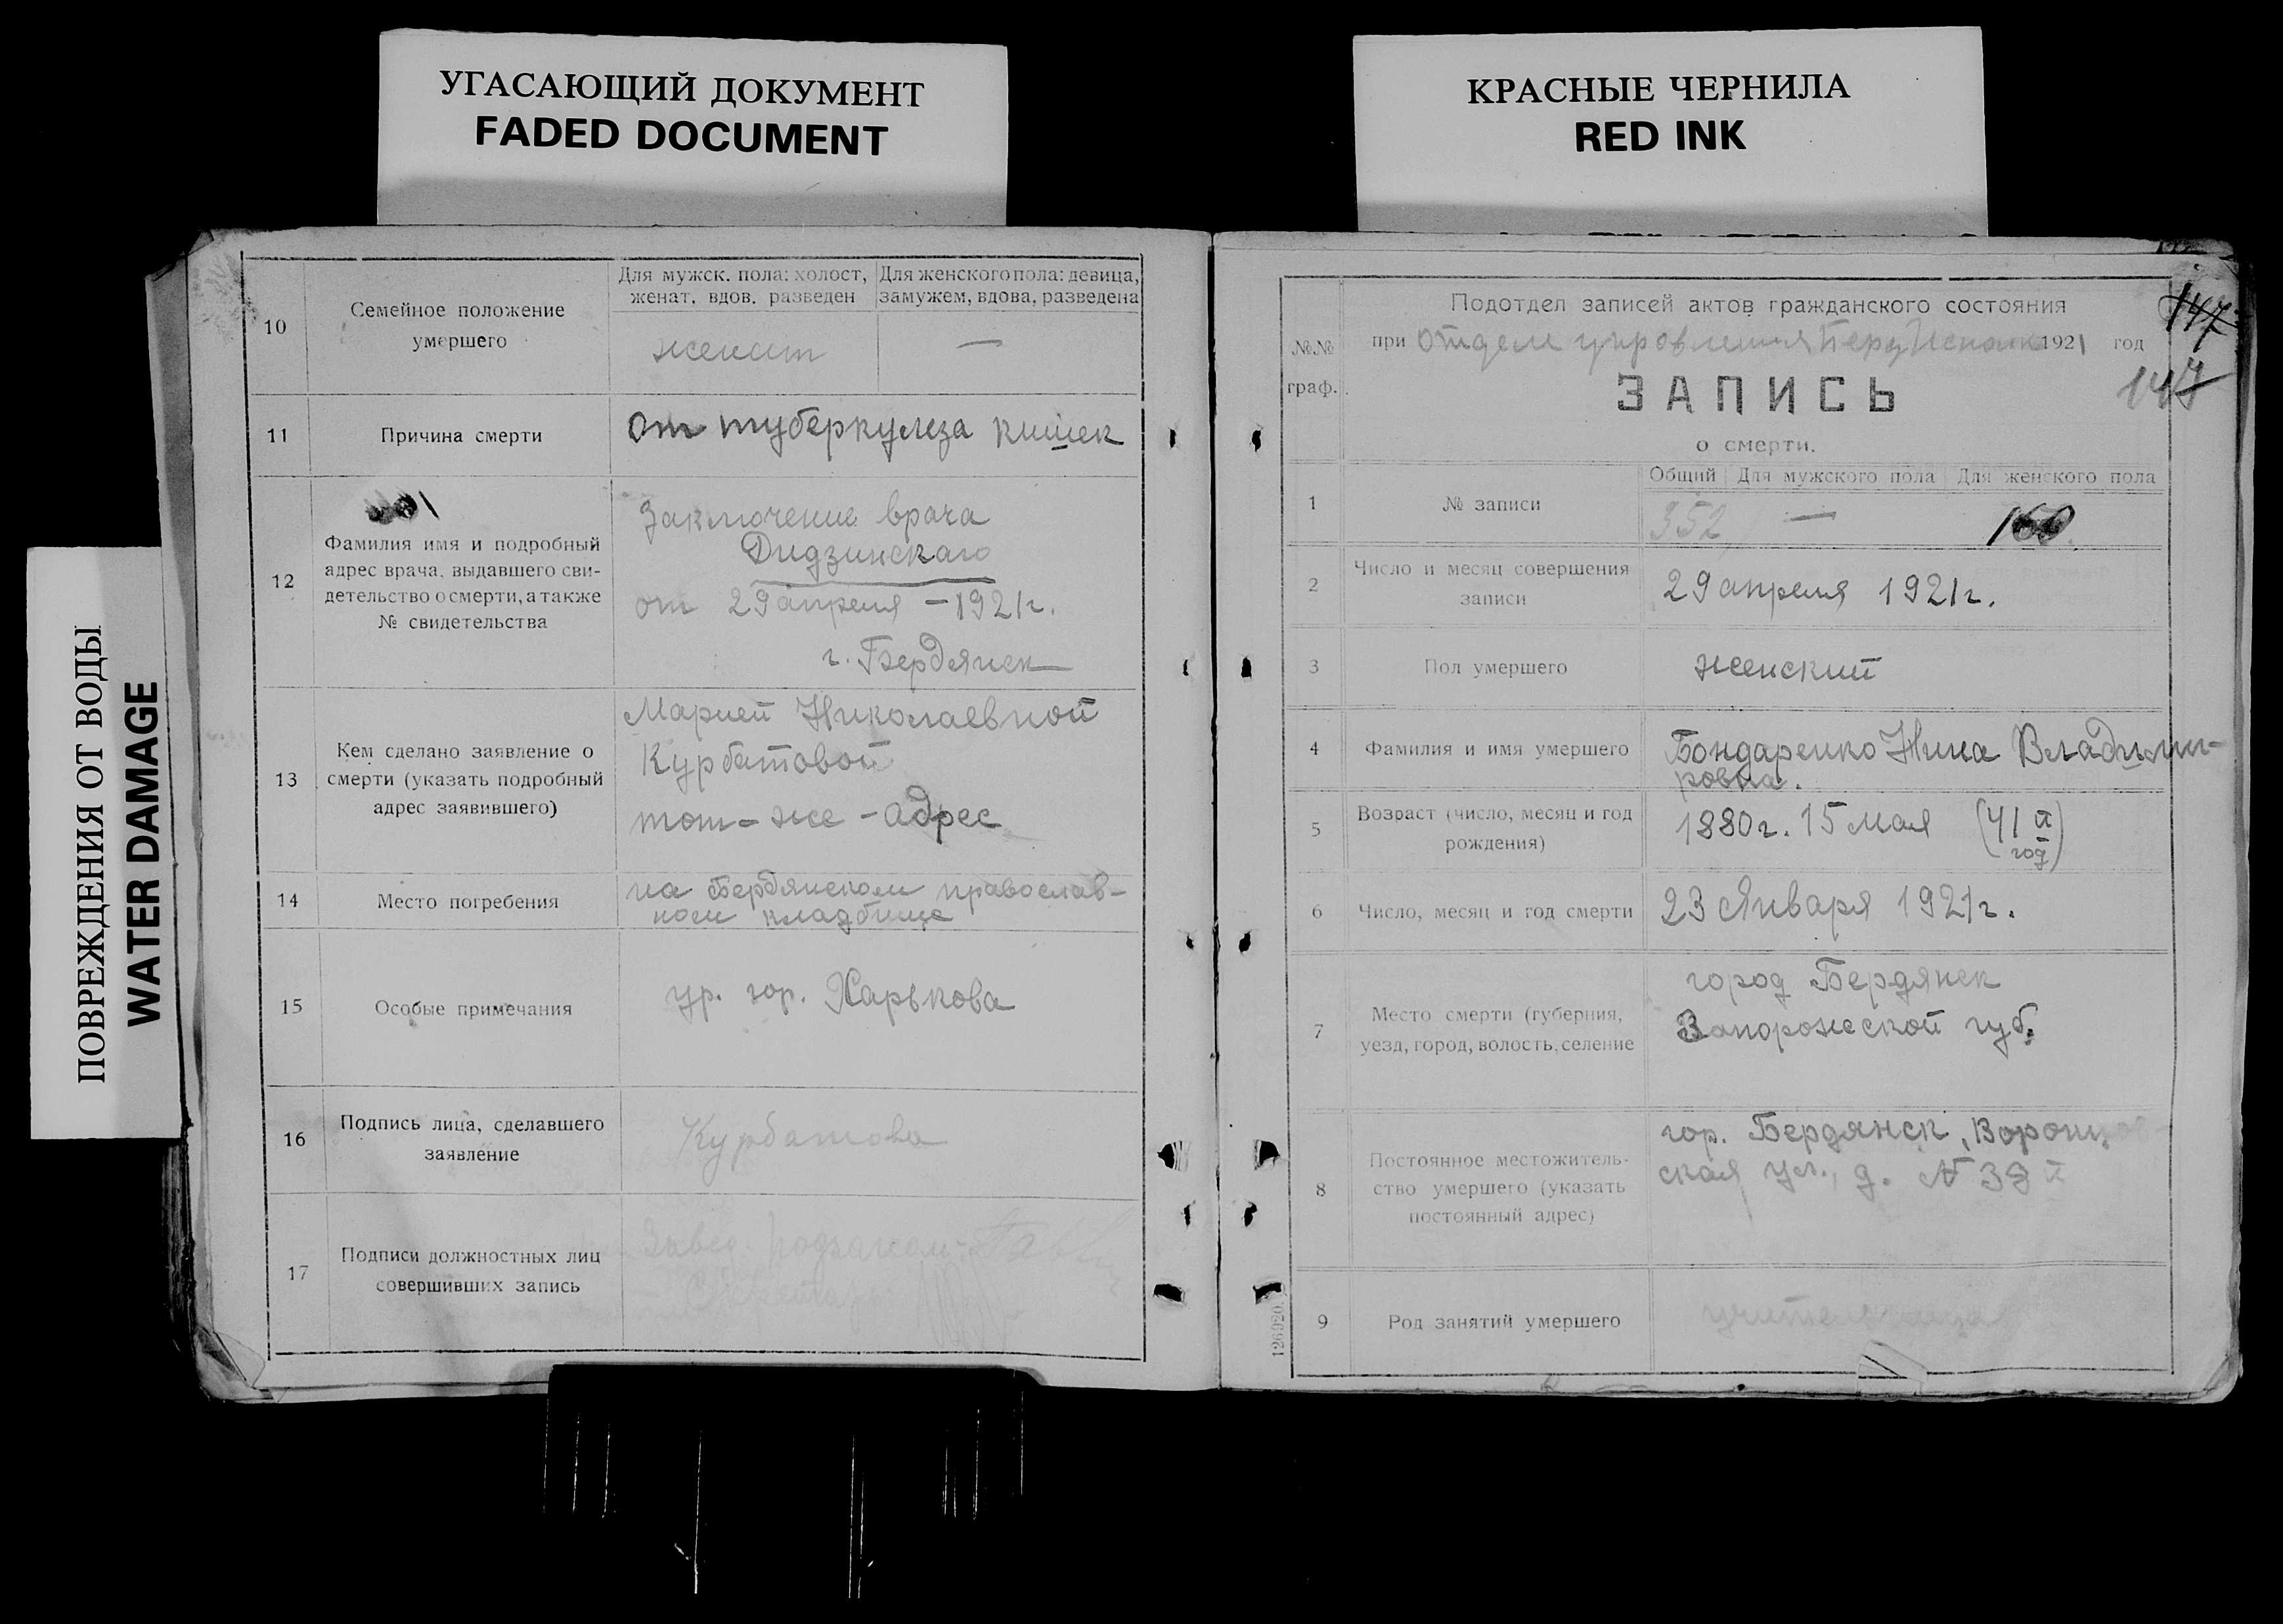 УГАСАЮЩИЙ ДОКУМЕНТ
FADED DOCUMENT
КРАСНЫЕ ЧЕРНИЛА
RED INK
ПОВРЕЖДЕНИЯ ОТ ВОДЫ
WATER DAMAGE
10
Семейное положение
умершего
Для мужск. пола: холост,
женат, вдов, разведен
Для женского пола: девица,
замужем, вдова, разведена
женат
—
11
Причина смерти
От туберкулеза кишек
12
Фамилия имя и подробный
адрес врача, выдавшего сви-
детельство о смерти, а также
№ свидетельства
Заключение врача
Дидзинскаго
от 29 апреля – 1921 г.
г. Бердянск
13
Кем сделано заявление о
смерти (указать подробный
адрес заявившего)
Марией Николаевной
Курбатовой
тот – же – адрес
14
Место погребения
на Бердянском православ-
ном кладбище
15
Особые примечания
ур. гор. Харькова
16
Подпись лица, сделавшего
заявление
Курбатова
17
Подписи должностных лиц
совершивших запись
Завед.
№№
граф.
Подотдел записей актов гражданского состояния
при Отделе управления 1921 год
147
147
ЗАПИСЬ
о смерти.
1
№ записи
Общий
Для мужского пола
Для женского пола
352
—
160
2
Число и месяц совершения
записи
29 апреля 1921 г.
3
Пол умершего
женский
4
Фамилия и имя умершего
Бондаренко Нина Владими-
ровна.
5
Возраст (число, месяц и год
рождения)
1880 г. 15 мая (41 й
год)
6
Число, месяц и год смерти
23 Января 1921 г.
7
Место смерти (губерния,
уезд, город, волость, селение
город Бердянск
Запорожской губ.
8
Постоянное местожитель-
ство умершего (указать
постоянный адрес)
гор. Бердянск,
ская ул., д. №
9
Род занятий умершего
учительница
126920.